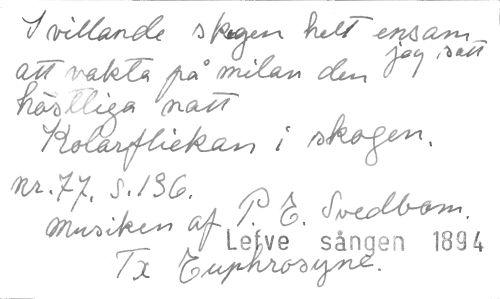 I villande skogen helt ensam
jag satt
att vakta på milan den
höstliga natt
Kolarflickan i skogen.
nr. 77. s. 196.
musiken af P. E. Svedbom.
Lefve sången 1894
Tx Euphrosyne.